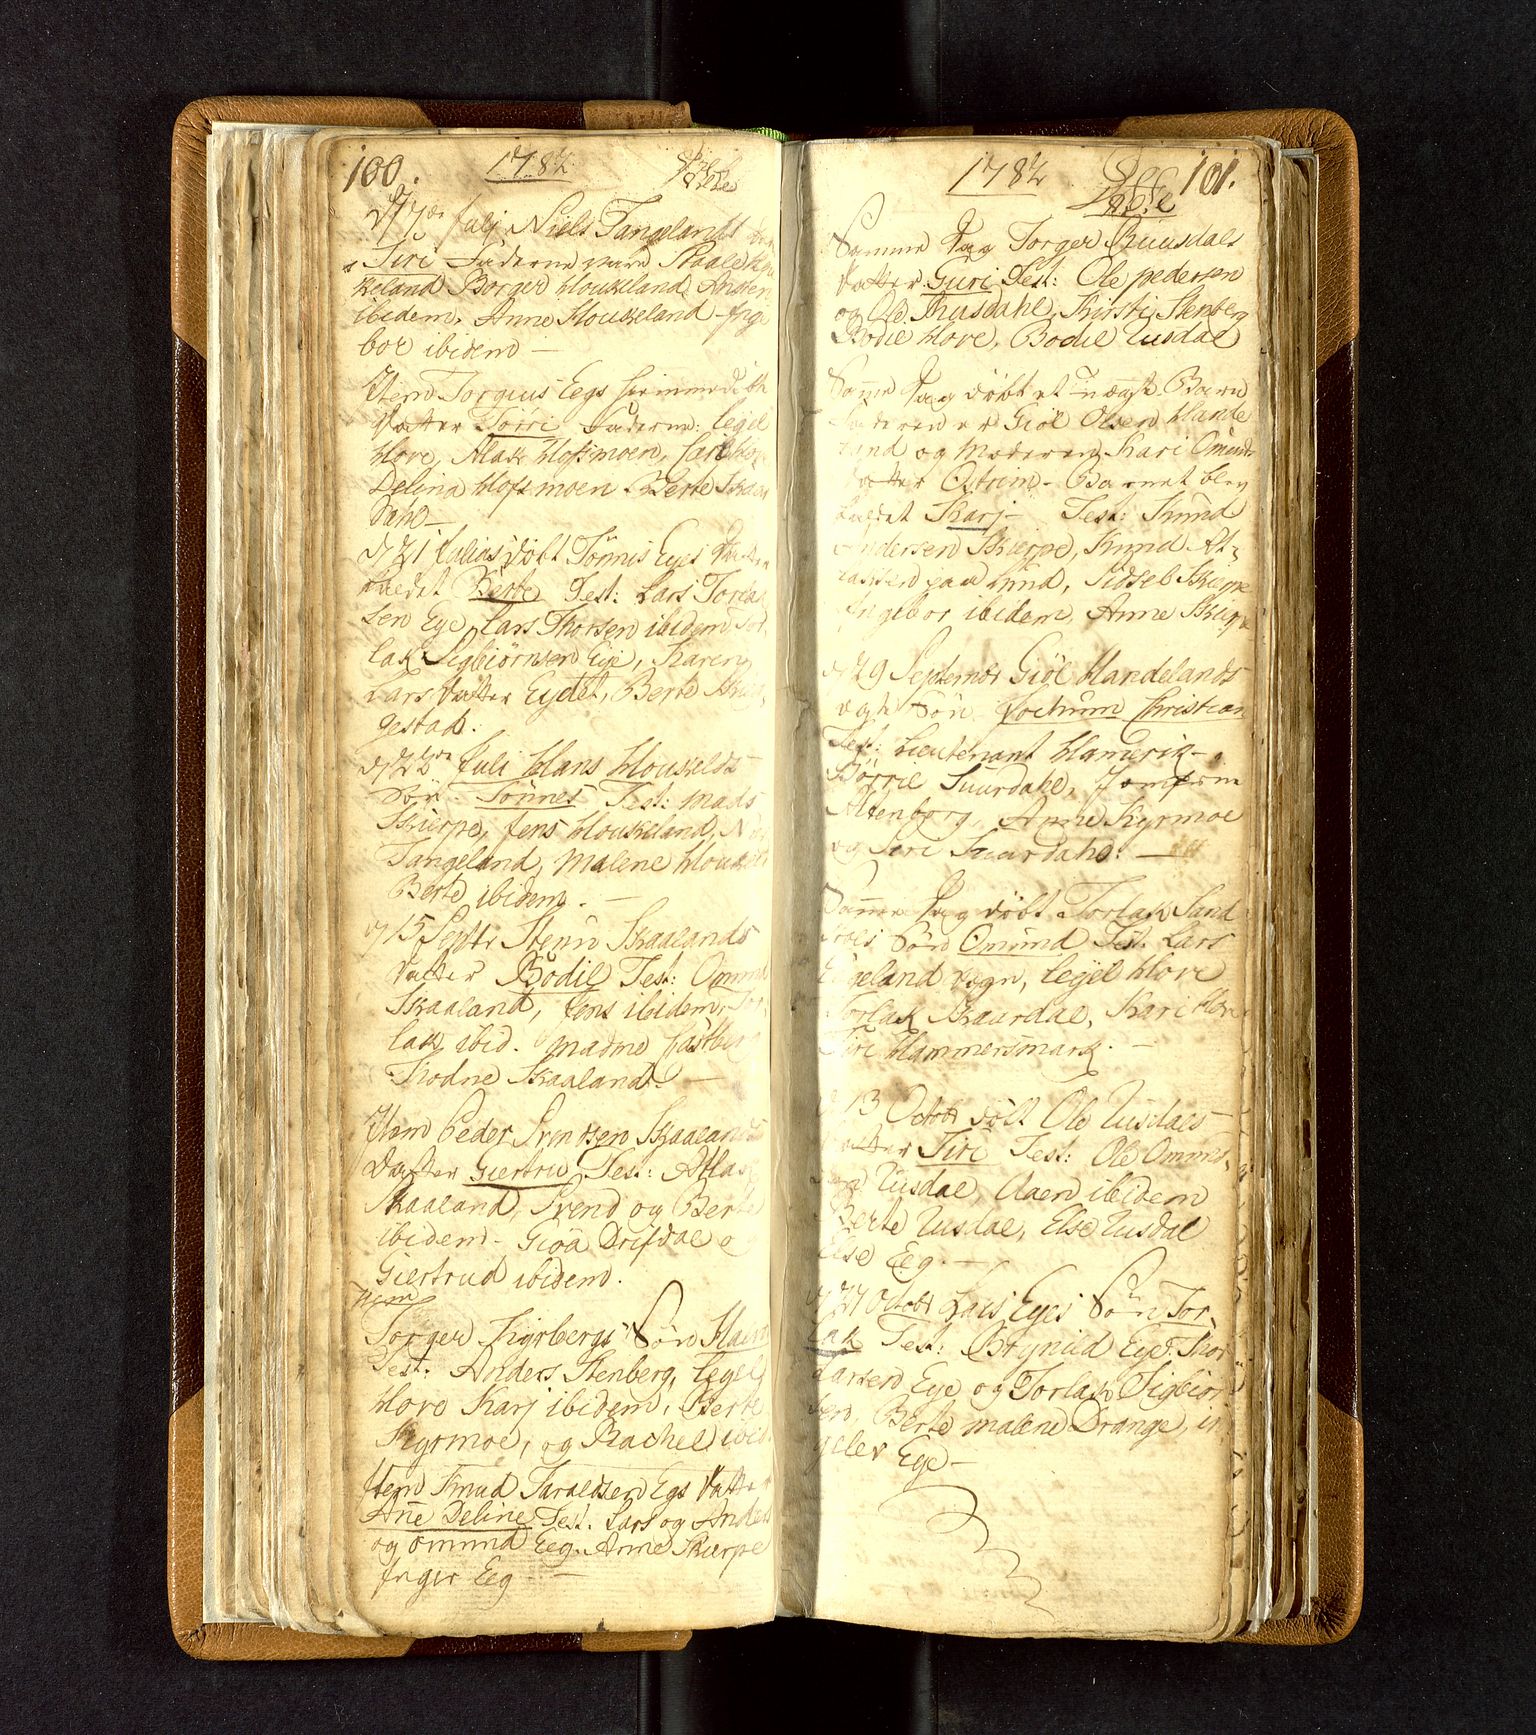 100. 1782
d 7de Julj Niels Tangelands
Siri Fadderne vare
keland Borger Houkeland, Anders
ibidem. Anne Houkeland Inge
bor ibidem —
Item Torgius Eegs
Datter Siri Fadderne: Legel
Hove, Atlak Hofsmoen,
Delina Hofsmoen, Berte Skaar
dahl —
d 21 Julius döbt Tönnis Eyes Datter
kaldet Berte Test: Lars Torlak
sen Eye, Lars Thorsen ibidem Tor
lak Sigbiörnsen Eye, Karen
Lars Datter Eydet, Berte
gestad.
d 23de Juli Hans Houkelds
Sön Tönnes Test: Mads
Skierpe, Jens Houkeland,
Tangeland, Malene Houkeld
Berte ibidem. —
d 15 Septr Stenn Skaalands
Datter Bodil Test: Omund
Skaaland, Jens ibidem, Tor
lak ibid. Madme
Thodne Skaaland. —
Item Peder Svendsen Skaalands
Datter Giertru Test: Atlak
Skaaland, Svend og Berte
ibidem - Giöa Drifdal o
Giertrud ibidem.
Item
Torger Kyrbergs Sön
Test: Anders Stenberg, Legel
Hove Karj ibidem, Berte
Kyrmoe, og Rachel ibid.
Item Knud Taraldsen Egs Datter
Ane Deline Test: Lars og Anders
og Omund Eeg. Anne Skierpe
Inger Eeg —
1782 101.
Samme Dag Torger Ruusdals
Datter Guri Test: Ole Pedersen
og Ole Ruusdahl, Kirsti Stenberg
Bodil Hove, Bodil Uusdal
Same Dag döbt et uægte Barn
Faderen er Giöl Olsen Hande
land og Moderen Kari Omunds
Datter Østrem - Barnet blev
kaldet Karj — Test: Knud
Andersen Skierpe, Knud At=
lassen paa Lund, Sidsel Skierpe
Ingebor ibidem, Anne Skierpe
d 29 September Giöl Handelands
ægte Sön Jochum Christian
Test: Lieutenant Hamerik —
Börril Suurdahl, Jomfrue
Altenborg, Anne Kyrmoe
og Siri Suurdahl. —
Same Dag döbt Torlak Sand
Sön Omund Test: Lars
Egeland Degn, Legel Hove
Torlak Skaardal, Kari Hove
Siri Hammersmark. —
d 13 Octobr döbt Ole Uusdals
Datter Siri Test: Ole Omund
sen Uusdal, Aaen ibidem
Berte Uusdal, Else Uusdal
Else Eeg. —
d 27 Octobr Lars Eyes Sön Tor=
lak Test: Brynild Eye, Thor
Larsen Eye og Torlak Sigbiör
sen, Berte Malene Drange, in
geler Eye —